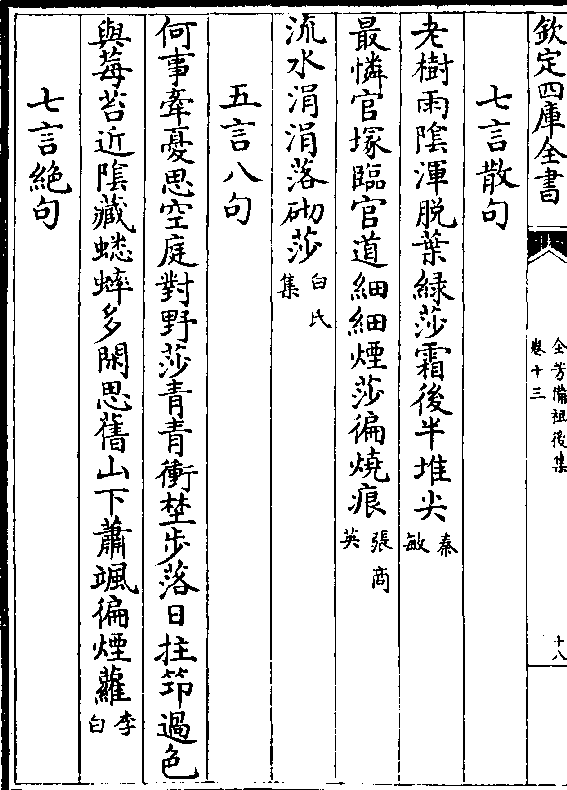 欽定四庫全書
全芳備祖後集
卷十三
十八
七言散句
老樹雨陰渾脱葉緑莎霜後半堆尖秦敏
最憐官塚臨官道細細煙莎徧燒痕張商英
流水涓涓落砌莎白氏集
五言八句
何事牽憂思空庭對野莎青青衝埜步落日拄笻過色
與莓苔近陰藏蟋蟀多閑思舊山下蕭颯徧煙蘿李白
七言絶句